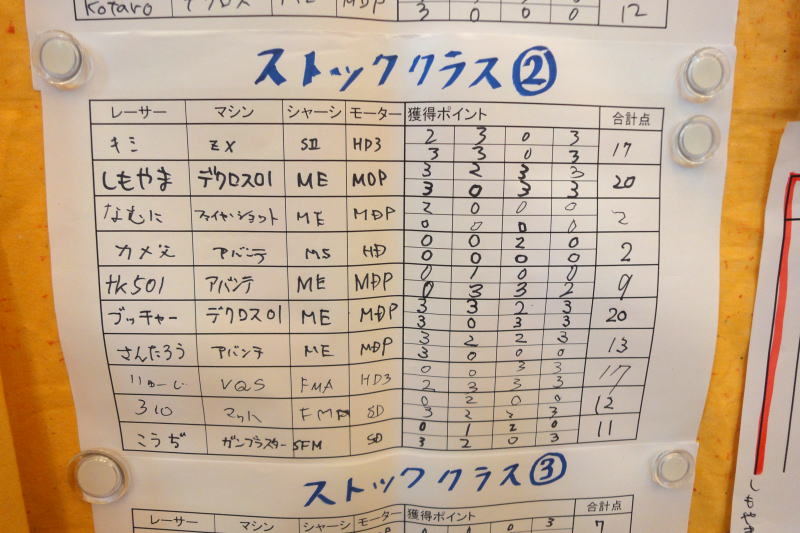 Kotaro デクロス MDP 12
3 0 0 0
ストッククラス②
レーサー マシン シャーシ モーター 獲得ポイント 合計点
キミ ZX SⅡ HD3 17
2 3 0 3
3 3 0 3
しもやま デクロス01 ME MDP 20
3 2 3 3
3 0 3 3
なむに ファイヤーショット ME MDP 2
2 0 0 0
0 0 0 0
カメ父 アバンテ MS HD 2
0 0 2 0
0 0 0 0
Hk501 アバンテ ME MDP 9
0 1 0 0
0 3 3 2
ブッチャー デクロス01 ME MDP 20
3 3 2 3
3 0 3 3
さんたろう アバンテ ME MDP 13
3 2 2 3
3 0 0 0
りゅーじ VQS FMA HD3 17
0 0 3 3
2 3 3 3
310 FMA SD 12
0 2 0 0
3 2 2 3
こうぢ ガンブラスター SFM SD 11
0 1 2 0
3 2 0 3
ストッククラス③
レーサー マシン シャーシ モーター 獲得ポイント 合計点
0 3 7